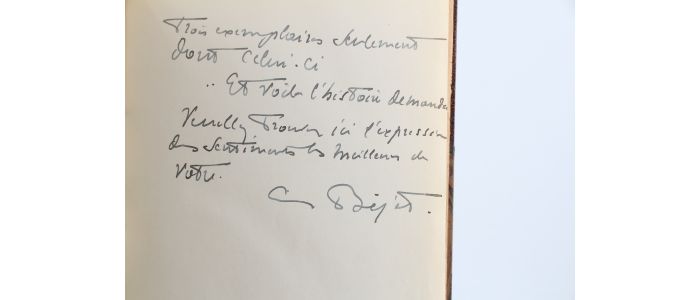 Trois exemplaires seulement
dont celui-ci
.. Et voila l'histoire demandée
Veuillez trouver ici l'expression
des sentiments les meilleurs de
votre.